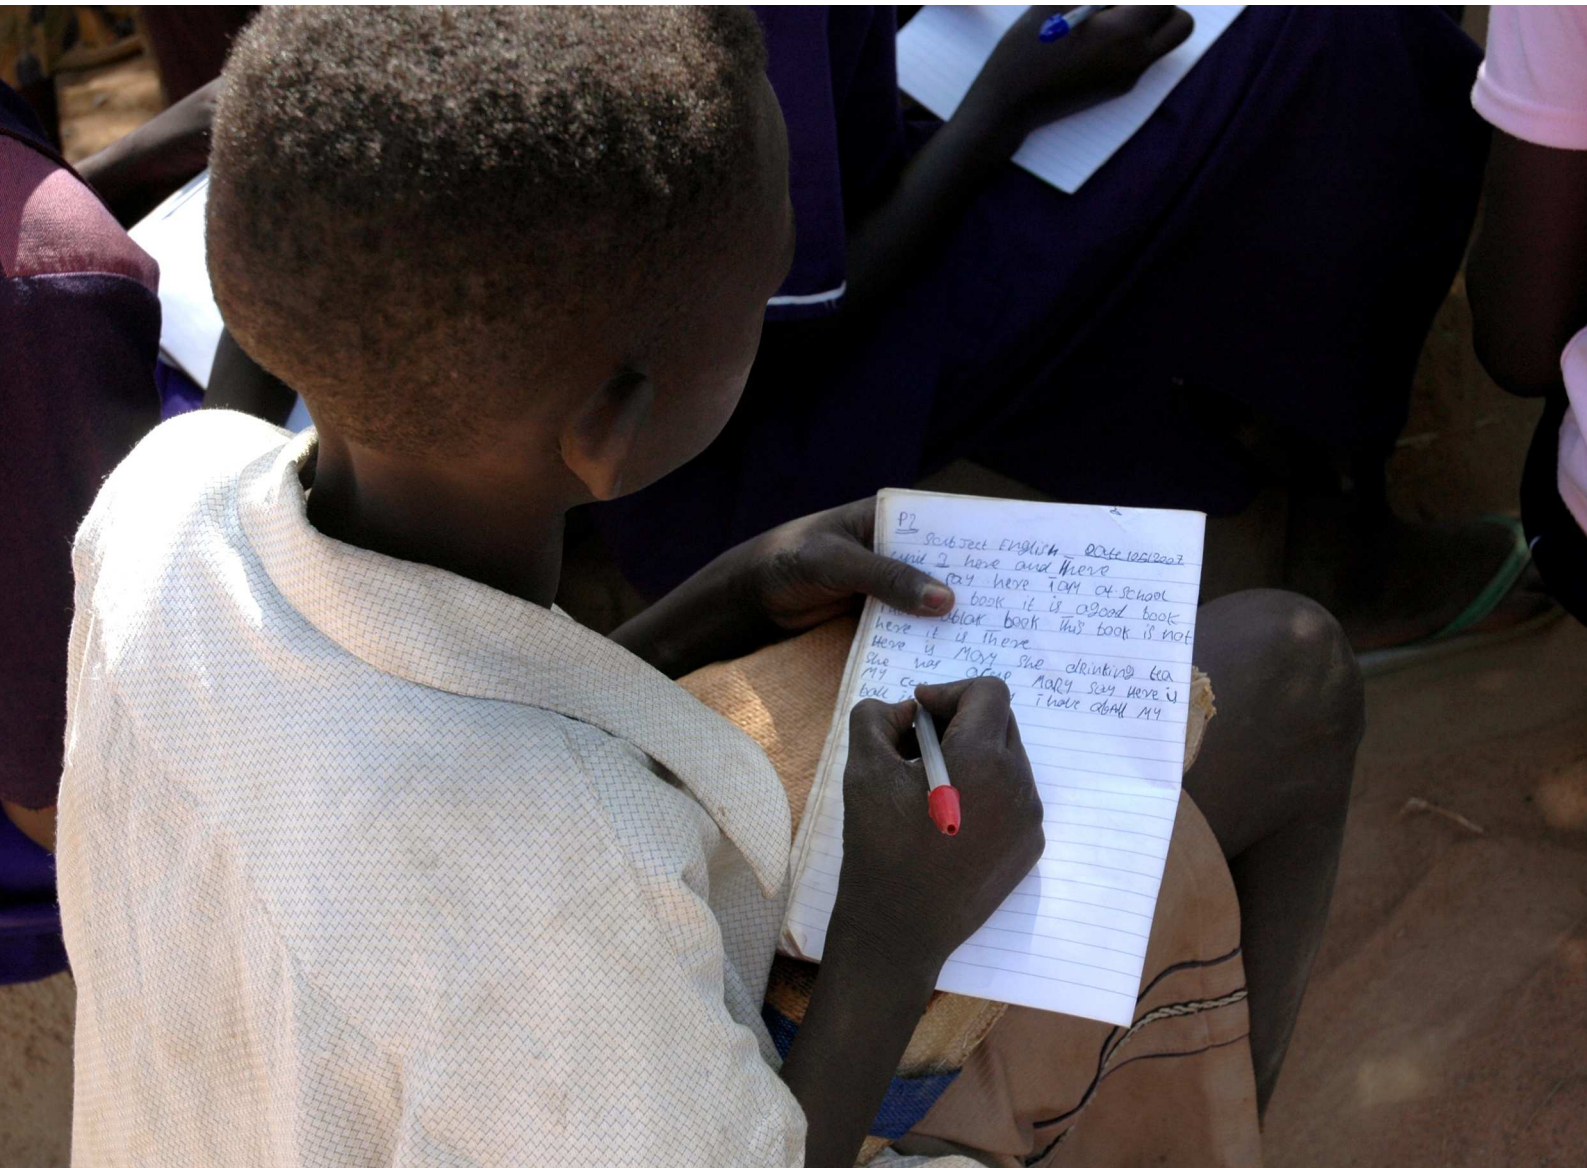 P2
Subject English Date
unit 2 here and there
say here I am at school
book it is agood book
book This book is not
here it is there
Here is Mary she drinking tea
She has acup MaRy say Here is
My
ball i have aball My